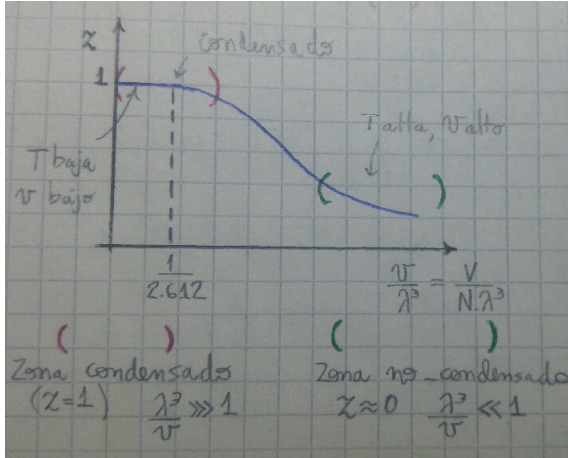 z
condensado
1
T alta, V alto
T baja
v bajo
1/2.612
v/λ³ = V/N.λ³
( ) ( )
Zona condensado
(z=1) λ³/v >>> 1
Zona no-condensado
z≈0 λ³/v << 1